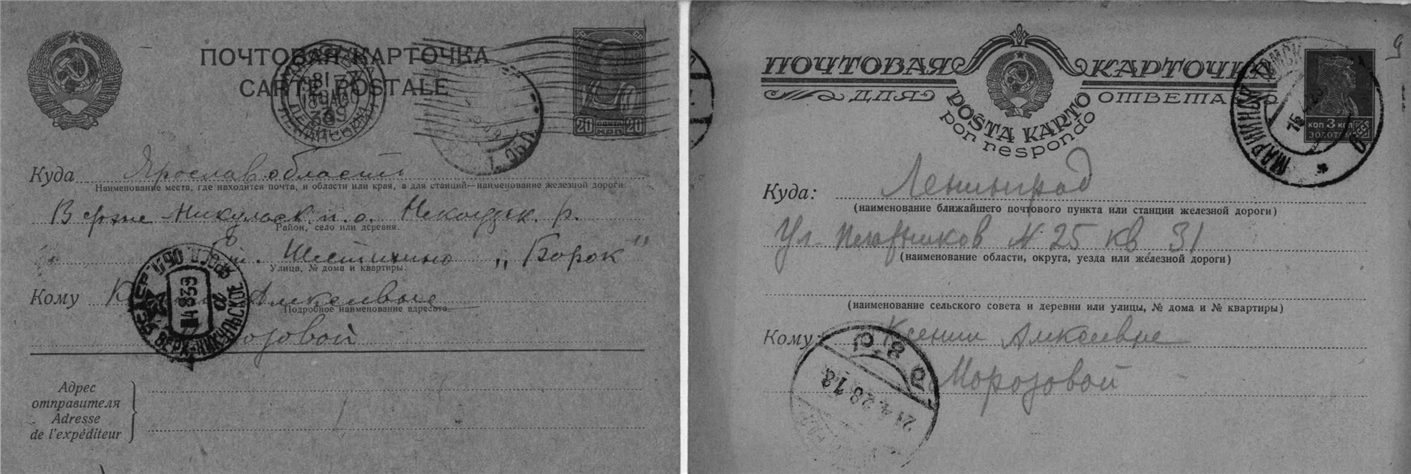 ПОЧТОВАЯ КАРТОЧКА
CARTE POSTALE
20 20
Куда Ярослав область
Наименование места, где находится почта, и области или края, а для станций—наименование железной дороги.
В ерхне Никульск. п. о. Некоузск. р.
Район, село или деревня.
Шестихино „Борок“
Улица, № дома и квартиры
Кому Алексеевне
Подробное наименование адресата.
Морозовой
Адрес
отправителя
Adresse
de l'expéditeur
ЯРОСЛ. ОБЛ.
ВЕРХ-НИКУЛЬСКОЕ
ПОЧТОВАЯ КАРТОЧКА
ДЛЯ ОТВЕТА
POSTA KARTO
por respondo
КОП 3 КОП
ЗОЛОТОМ
МАРИИНСК
9
Куда: Ленинград
(наименование ближайшего почтового пункта или станции железной дороги)
Ул. Печатников N 25 кв 31
(наименование области, округа, уезда или железной дороги)
(наименование сельского совета и деревни или улицы, № дома и № квартиры)
Кому: Ксении Алексеевне
Морозовой